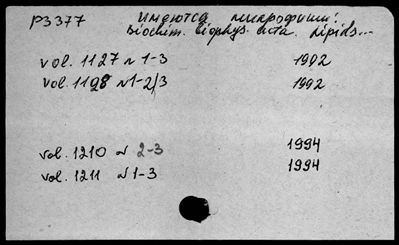 P3377 имеются микрофиши:
Biochim. Biophys. Acta. Lipids...
vol. 1127 N 1-3 1992
vol. 1128 N 1-2/3 1992
vol. 1210 N 2-3 1994
vol. 1211 N 1-3 1994